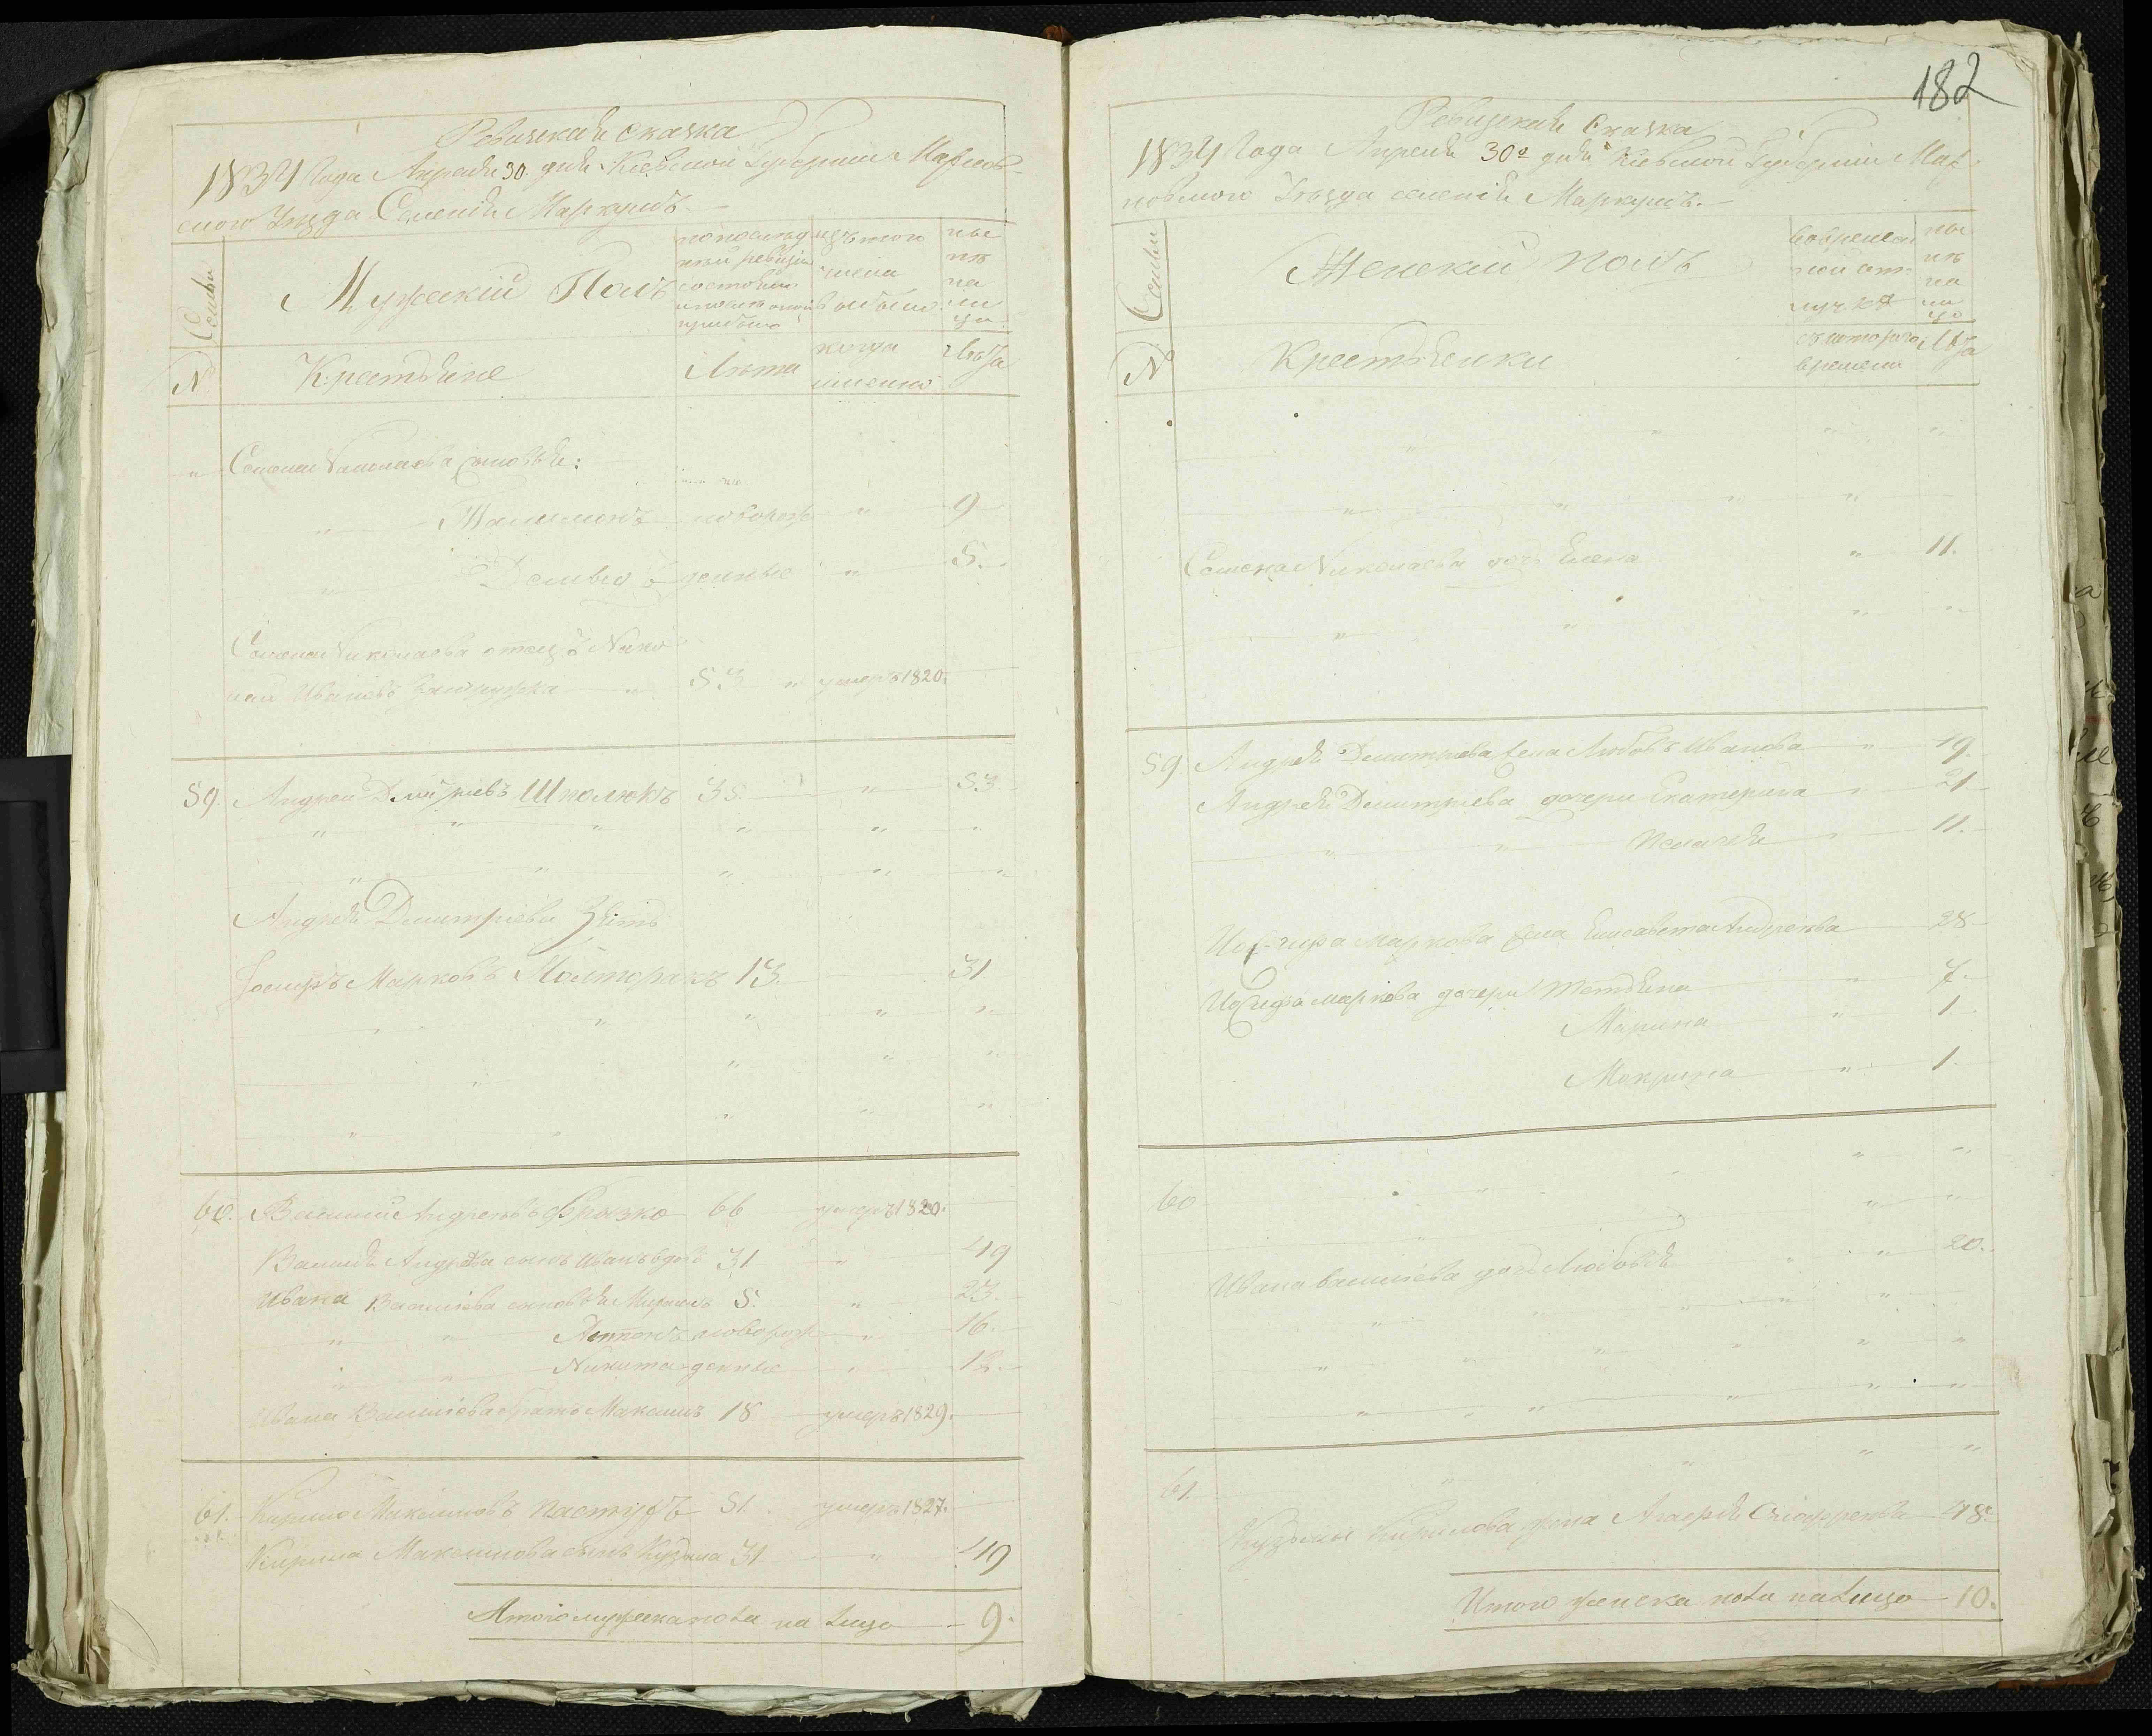 182
Ревизская сказка
1834 Года Апреля 30 дня Киевской Губернии Махнов-
ского Уезда Селения Маркушъ
Семьи
Мужескій Полъ
по последней ревизіи состояло и после оной прибыло
изъ того числа выбыло
ныне на лицо
№
Крестьяне
Лета
когда именно
Лета
Семена Николаева сыновья:
новорож 9
денные 5.
Семена Николаева отецъ Нико
лай Ивановъ 53 умеръ 1820.
59. Андрей Дмитріевъ Шполюкъ 35. 53
Андрея Дмитріева Зять
Іосифъ Марковъ Полторакъ 13. 31
60. Василий Андреевъ 66 умеръ 1820.
Василія Андреева сынъ Иванъ вдовъ 31 49
Ивана Васильева сыновья 5. 23.
Антонъ новорож 16.
Никита денные 12.
Ивана Васильева братъ Максимъ 18 умеръ 1829.
61. Кирило Максимовъ Пастухъ 51 умеръ 1827.
Кирила Максимова сынъ Кузьма 31 49
Итого мужеска пола на лицо 9.
Ревизская Сказка
1834 Года Апреля 30го дня Киевской Губерніи Мах-
новского Уезда селенія Маркушъ.
Семьи
Женскій полъ
во временной отлучке
ныне на лицо
№
Крестьянки
съ которого времени
Лета
Семена Николаева дочь Елена 11.
59 Андрея Дмитріева жена Любовъ Иванова 49.
Андрея Дмитріева дочери Екатерина 21
Пелагея 11.
Иосифа Маркова жена Елисавета Андреева 28
Иосифа Маркова дочери Татьяна 7.
Марина 1
Макрина 1.
60
Ивана Васильева дочь Любовья 20.
61.
Кузьмы Кирилова жена 48.
Итого женска пола на лицо 10.